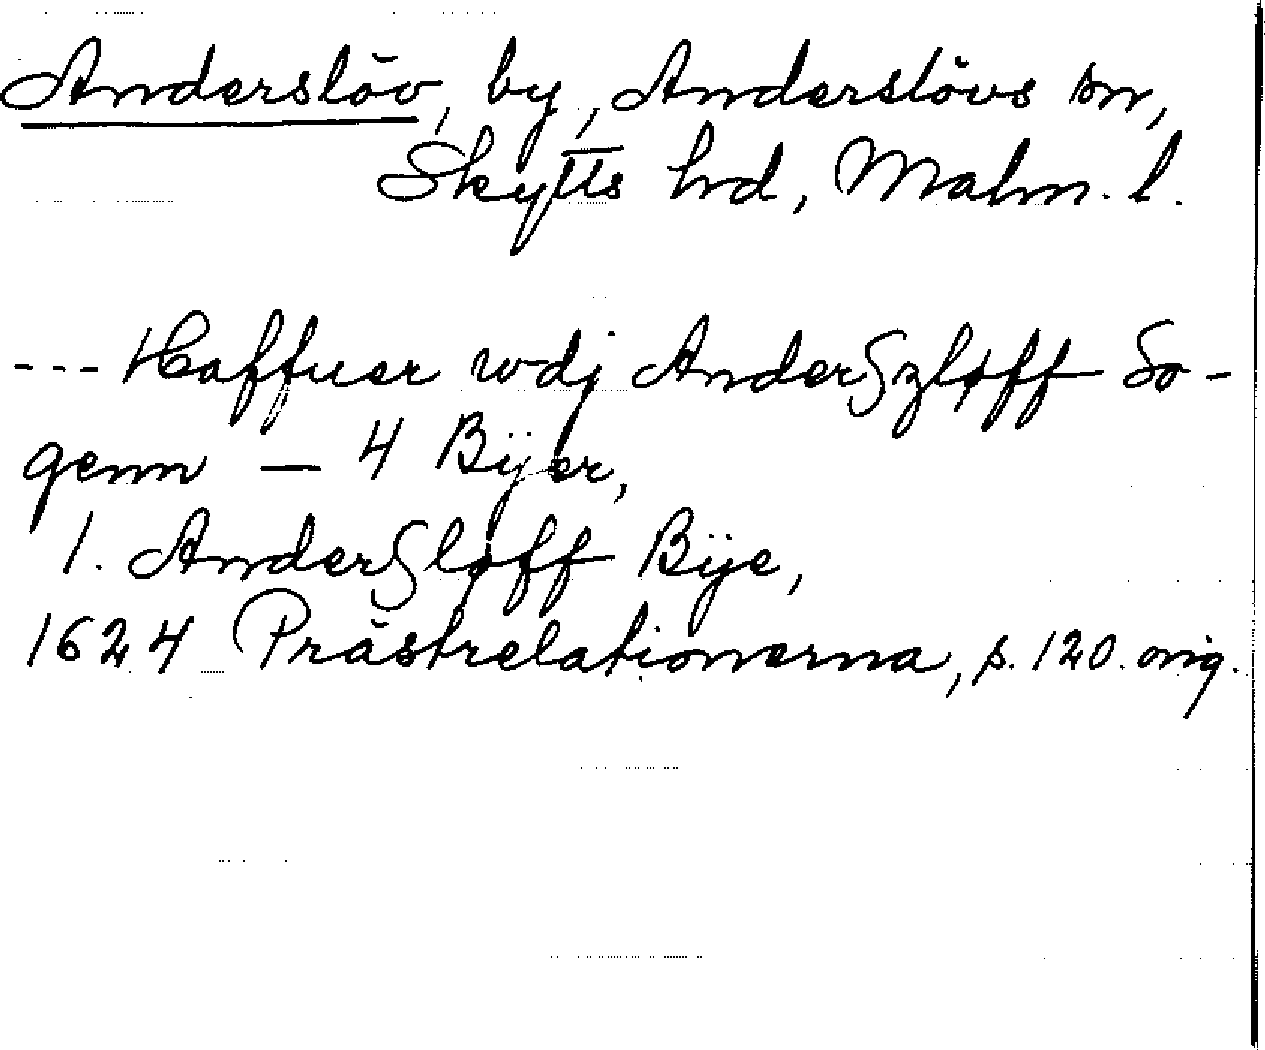 Anderslöv, by, Anderslövs sn,
Skytts hd, Malm. l.
--- Haffuer wdj Anderßzløff So-
genn — 4 Bÿer,
1. Anderßløff Bÿe,
1624 Prästrelationerna, s. 120. orig.